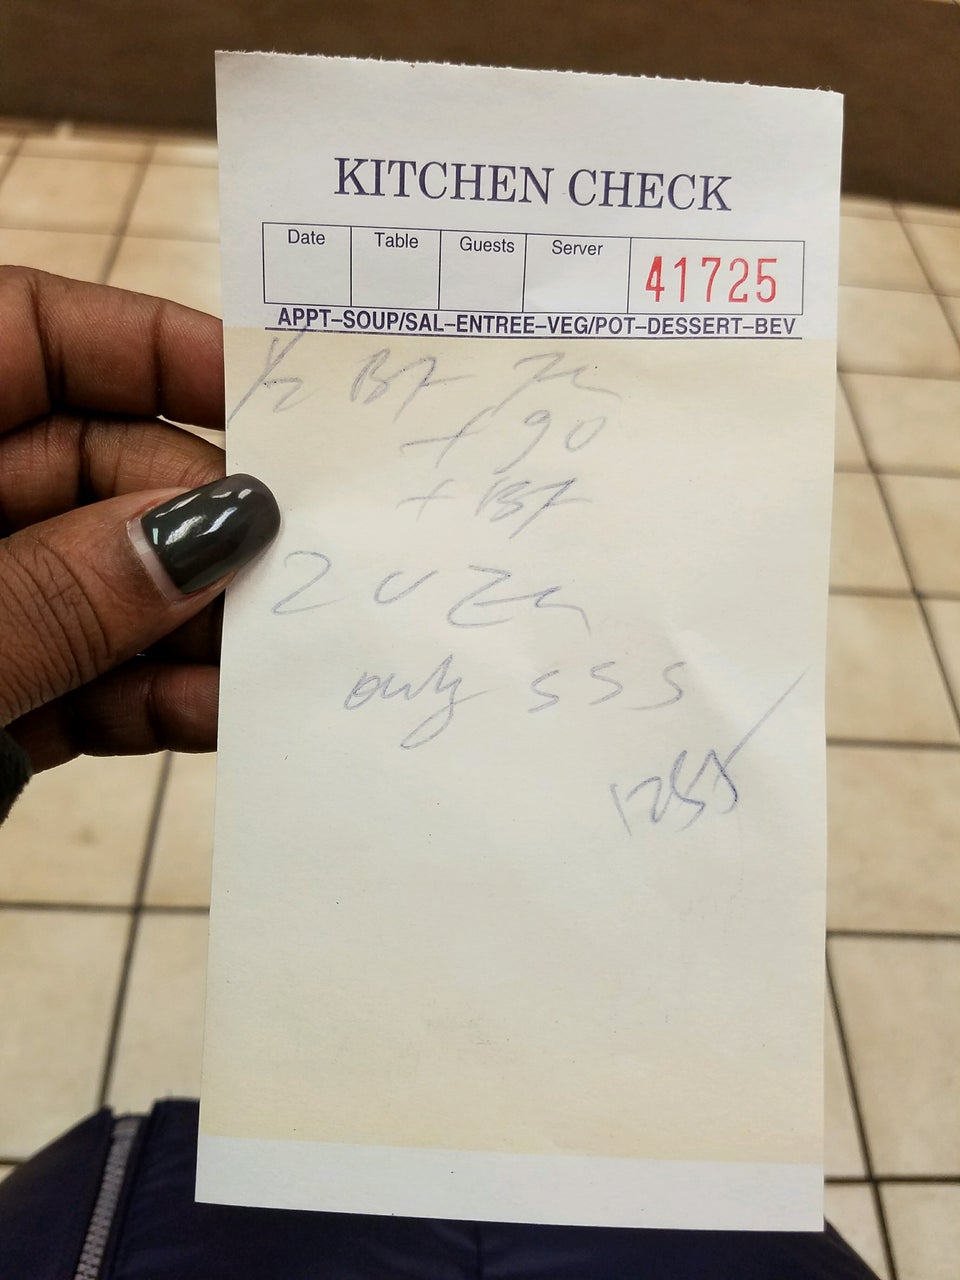 KITCHEN CHECK
Date Table Guests Server 41725
APPT–SOUP/SAL–ENTREE–VEG/POT–DESSERT–BEV
1/2 BF
+ 90
+ BF
2
only S S S